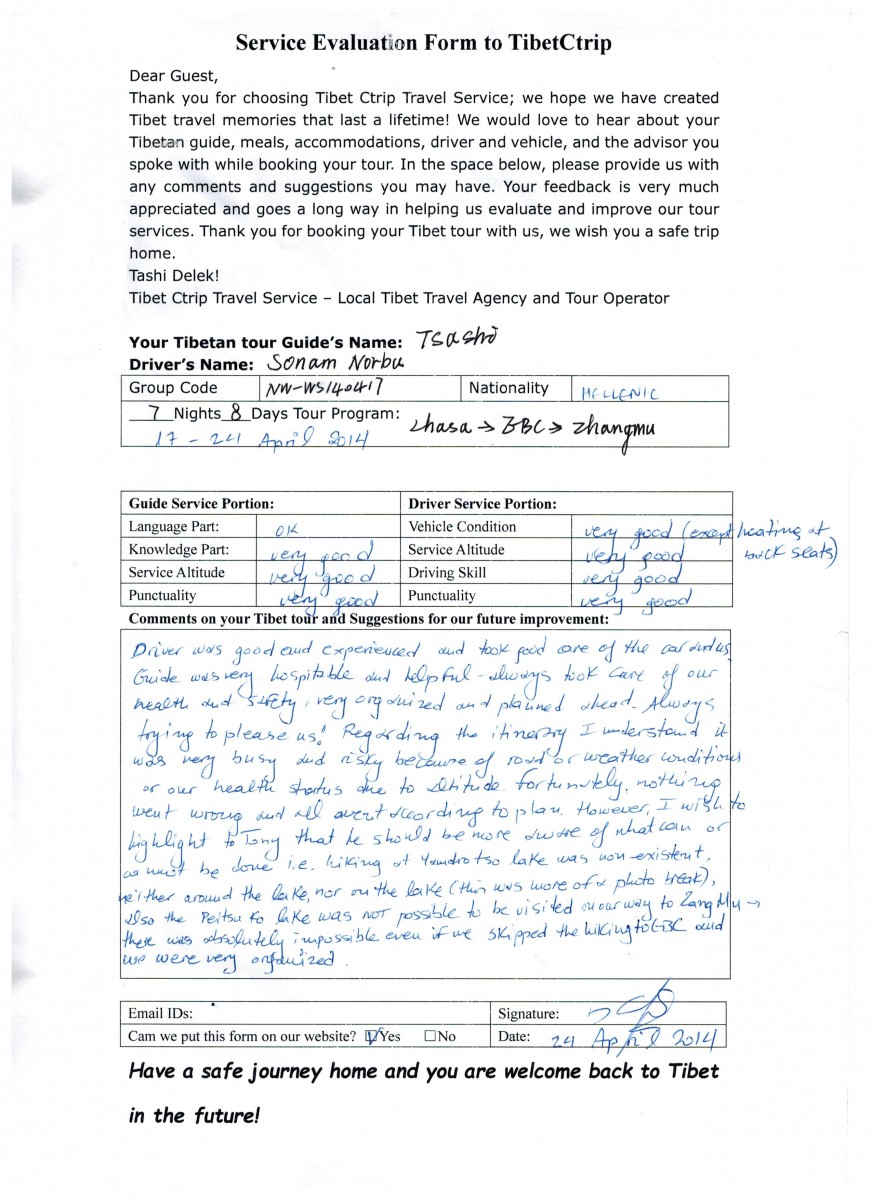 Service Evaluation Form to TibetCtrip
Dear Guest,
Thank you for choosing Tibet Ctrip Travel Service; we hope we have created
Tibet travel memories that last a lifetime! We would love to hear about your
Tibetan guide, meals, accommodations, driver and vehicle, and the advisor you
spoke with while booking your tour. In the space below, please provide us with
any comments and suggestions you may have. Your feedback is very much
appreciated and goes a long way in helping us evaluate and improve our tour
services. Thank you for booking your Tibet tour with us, we wish you a safe trip
home.
Tashi Delek!
Tibet Ctrip Travel Service – Local Tibet Travel Agency and Tour Operator
Your Tibetan tour Guide's Name: Tsashi
Driver's Name: Sonam Norbu
Group Code NW-WS140417 Nationality HELLENIC
7 Nights 8 Days Tour Program: Lhasa → EBC → Zhangmu
17 - 24 April 2014
Guide Service Portion: Driver Service Portion:
Language Part: OK Vehicle Condition very good (except heating at back seats)
Knowledge Part: very good Service Altitude very good
Service Altitude very good Driving Skill very good
Punctuality very good Punctuality very good
Comments on your Tibet tour and Suggestions for our future improvement:
Driver was good and experienced and took good care of the car and us
Guide was very hospitable and helpful - always took care of our
health and safety, very organized and planned ahead. Always
trying to please us! Regarding the itinerary I understand it
was very busy and risky because of road or weather conditions
or our health status due to altitude. Fortunately, nothing
went wrong and all went according to plan. However, I wish to
highlight to Tony that he should be more aware of what can or
must be done i.e. hiking at Yamdrotso lake was non-existent,
neither around the lake, nor on the lake (this was more of a photo break),
also the Peitsu Ko lake was NOT possible to be visited on our way to Zang Mu →
there was absolutely impossible even if we skipped the hiking to EBC and
we were very organized.
Email IDs: Signature:
Cam we put this form on our website? Yes No Date: 24 April 2014
Have a safe journey home and you are welcome back to Tibet
in the future!